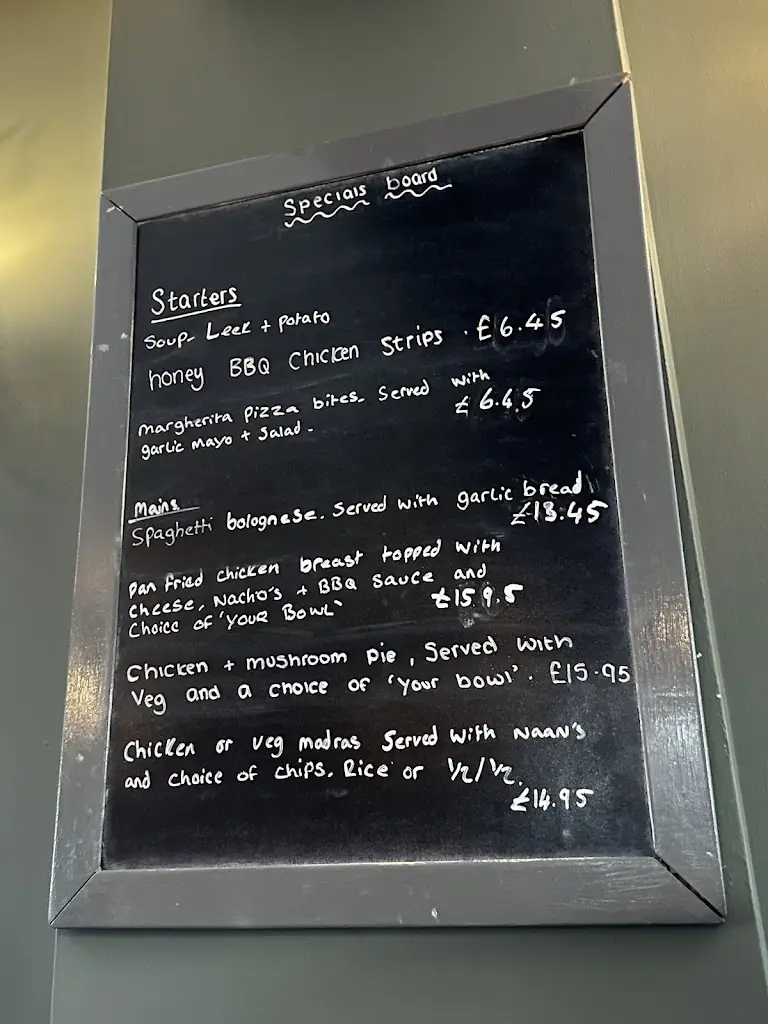 Specials board
Starters
Soup- Leek + potato
honey BBQ Chicken Strips . £6.45
margherita pizza bites. Served with
garlic mayo + salad. £6.45
Mains
Spaghetti bolognese. Served with garlic bread
£13.45
pan fried chicken breast topped with
cheese, Nacho's + BBQ sauce and
Choice of 'YOUR BOWL' £15 9.5
Chicken + mushroom pie, Served with
Veg and a choice of 'your bowl'. £15.95
Chicken or veg madras Served with NAAN'S
and choice of chips. Rice or 1/2/1/2.
£14.95